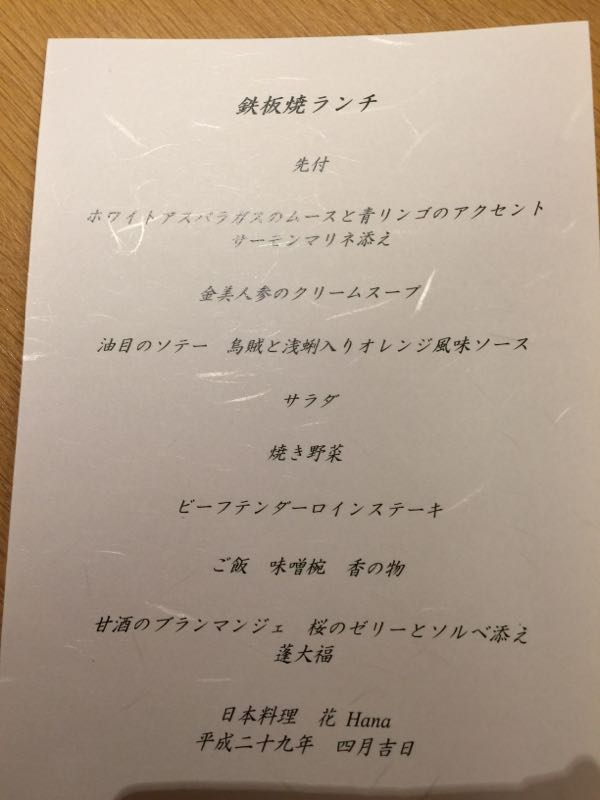 鉄板焼ランチ
先付
ホワイトアスパラガスのムースと青リンゴのアクセント
サーモンマリネ添え
金美人参のクリームスープ
油目のソテー　烏賊と浅蜊入りオレンジ風味ソース
サラダ
焼き野菜
ビーフテンダーロインステーキ
ご飯　味噌椀　香の物
甘酒のブランマンジェ　桜のゼリーとソルベ添え
蓬大福
日本料理　花 Hana
平成二十九年　四月吉日